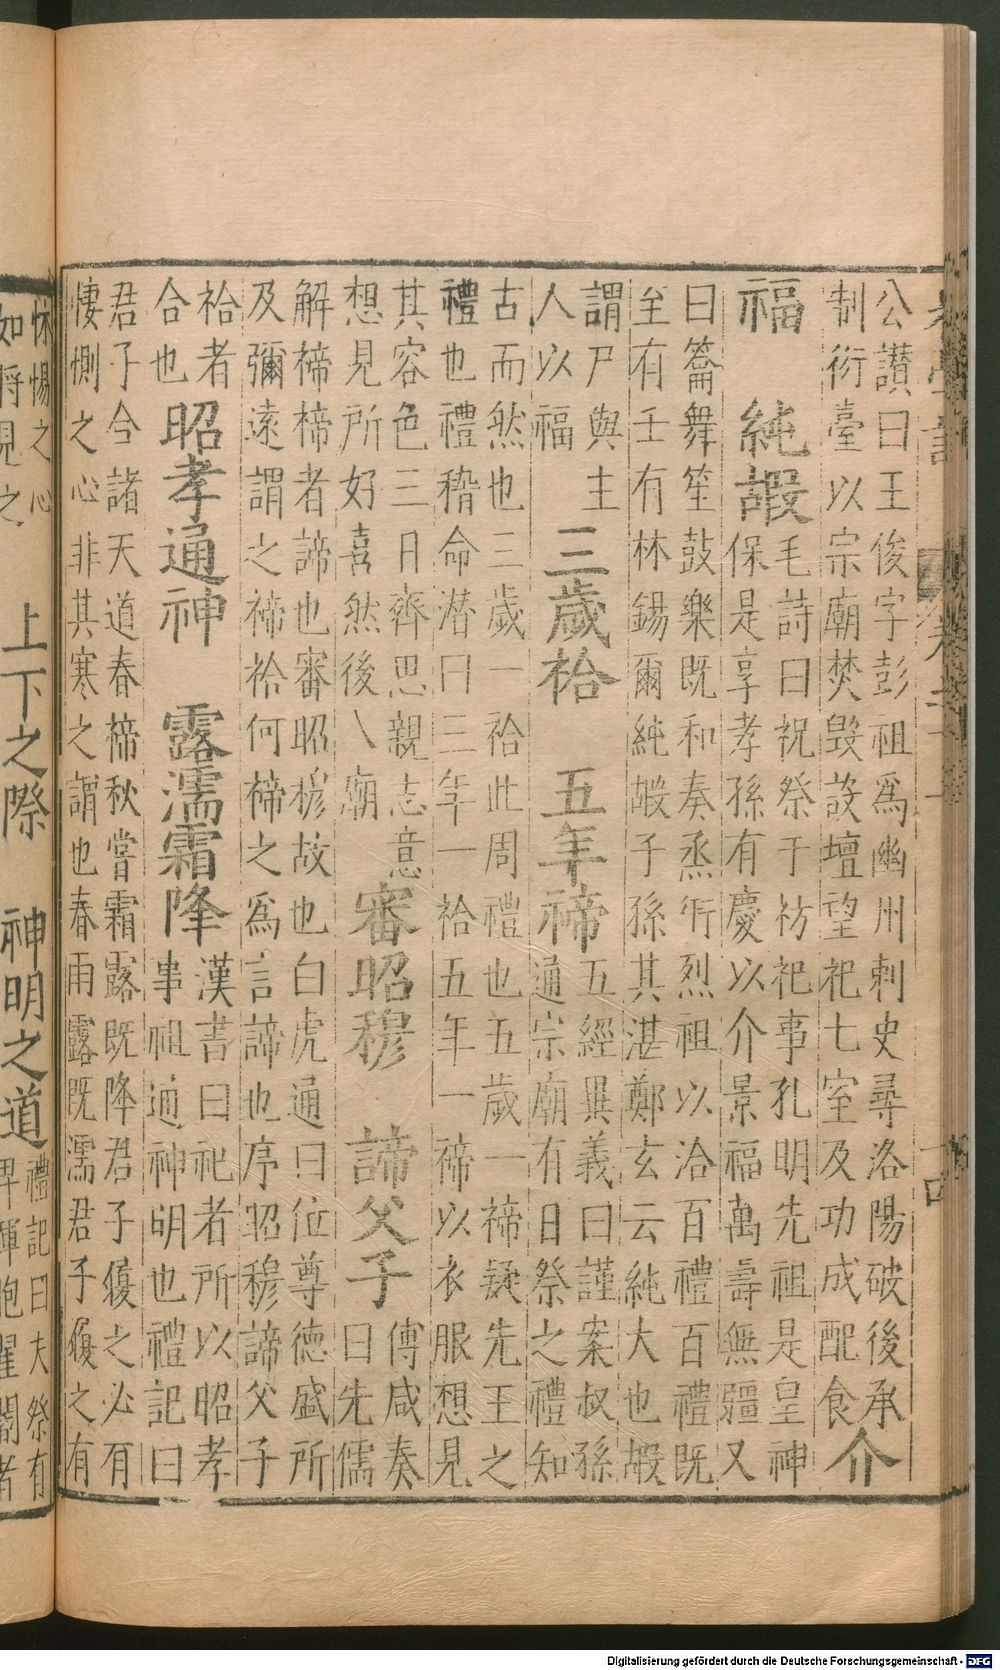 學記
卷十三
十四
公讃曰王後字彭祖爲幽州刺史尋洛陽破後承
制衍臺以宗廟焚毁設壇望祀七室及功成配食
介
福　純嘏
毛詩曰祝祭于祊祀事孔明先祖是皇神
保是享孝孫有慶以介景福萬壽無疆又
曰籥舞笙鼓樂既和奏烝衎烈祖以洽百禮百禮既
至有壬有林錫爾純嘏子孫其湛鄭玄云純大也嘏
謂尸與主
人以福
三歲祫　五年禘
五經異義曰謹案叔孫
通宗廟有日祭之禮知
古而然也三歲一祫此周禮也五歲一禘疑先王之
禮也禮稽命潜曰三年一祫五年一禘以衣服想見
其容色三日齊思親志意
想見所好喜然後入廟
審昭穆　諦父子
傅咸奏
曰先儒
解禘禘者諦也審昭穆故也白虎通曰位尊德盛所
及彌遠謂之禘祫何禘之爲言諦也序昭穆諦父子
祫者
合也
昭孝通神　露濡霜降
漢書曰祀者所以昭孝
事祖通神明也禮記曰
君子合諸天道春禘秋嘗霜露既降君子履之必有
悽惻之心非其寒之謂也春雨露既濡君子履之有
怵惕之心
如將見之
上下之際　神明之道
禮記曰夫祭有
畀煇胞翟閽者
Digitalisierung gefördert durch die Deutsche Forschungsgemeinschaft - DFG